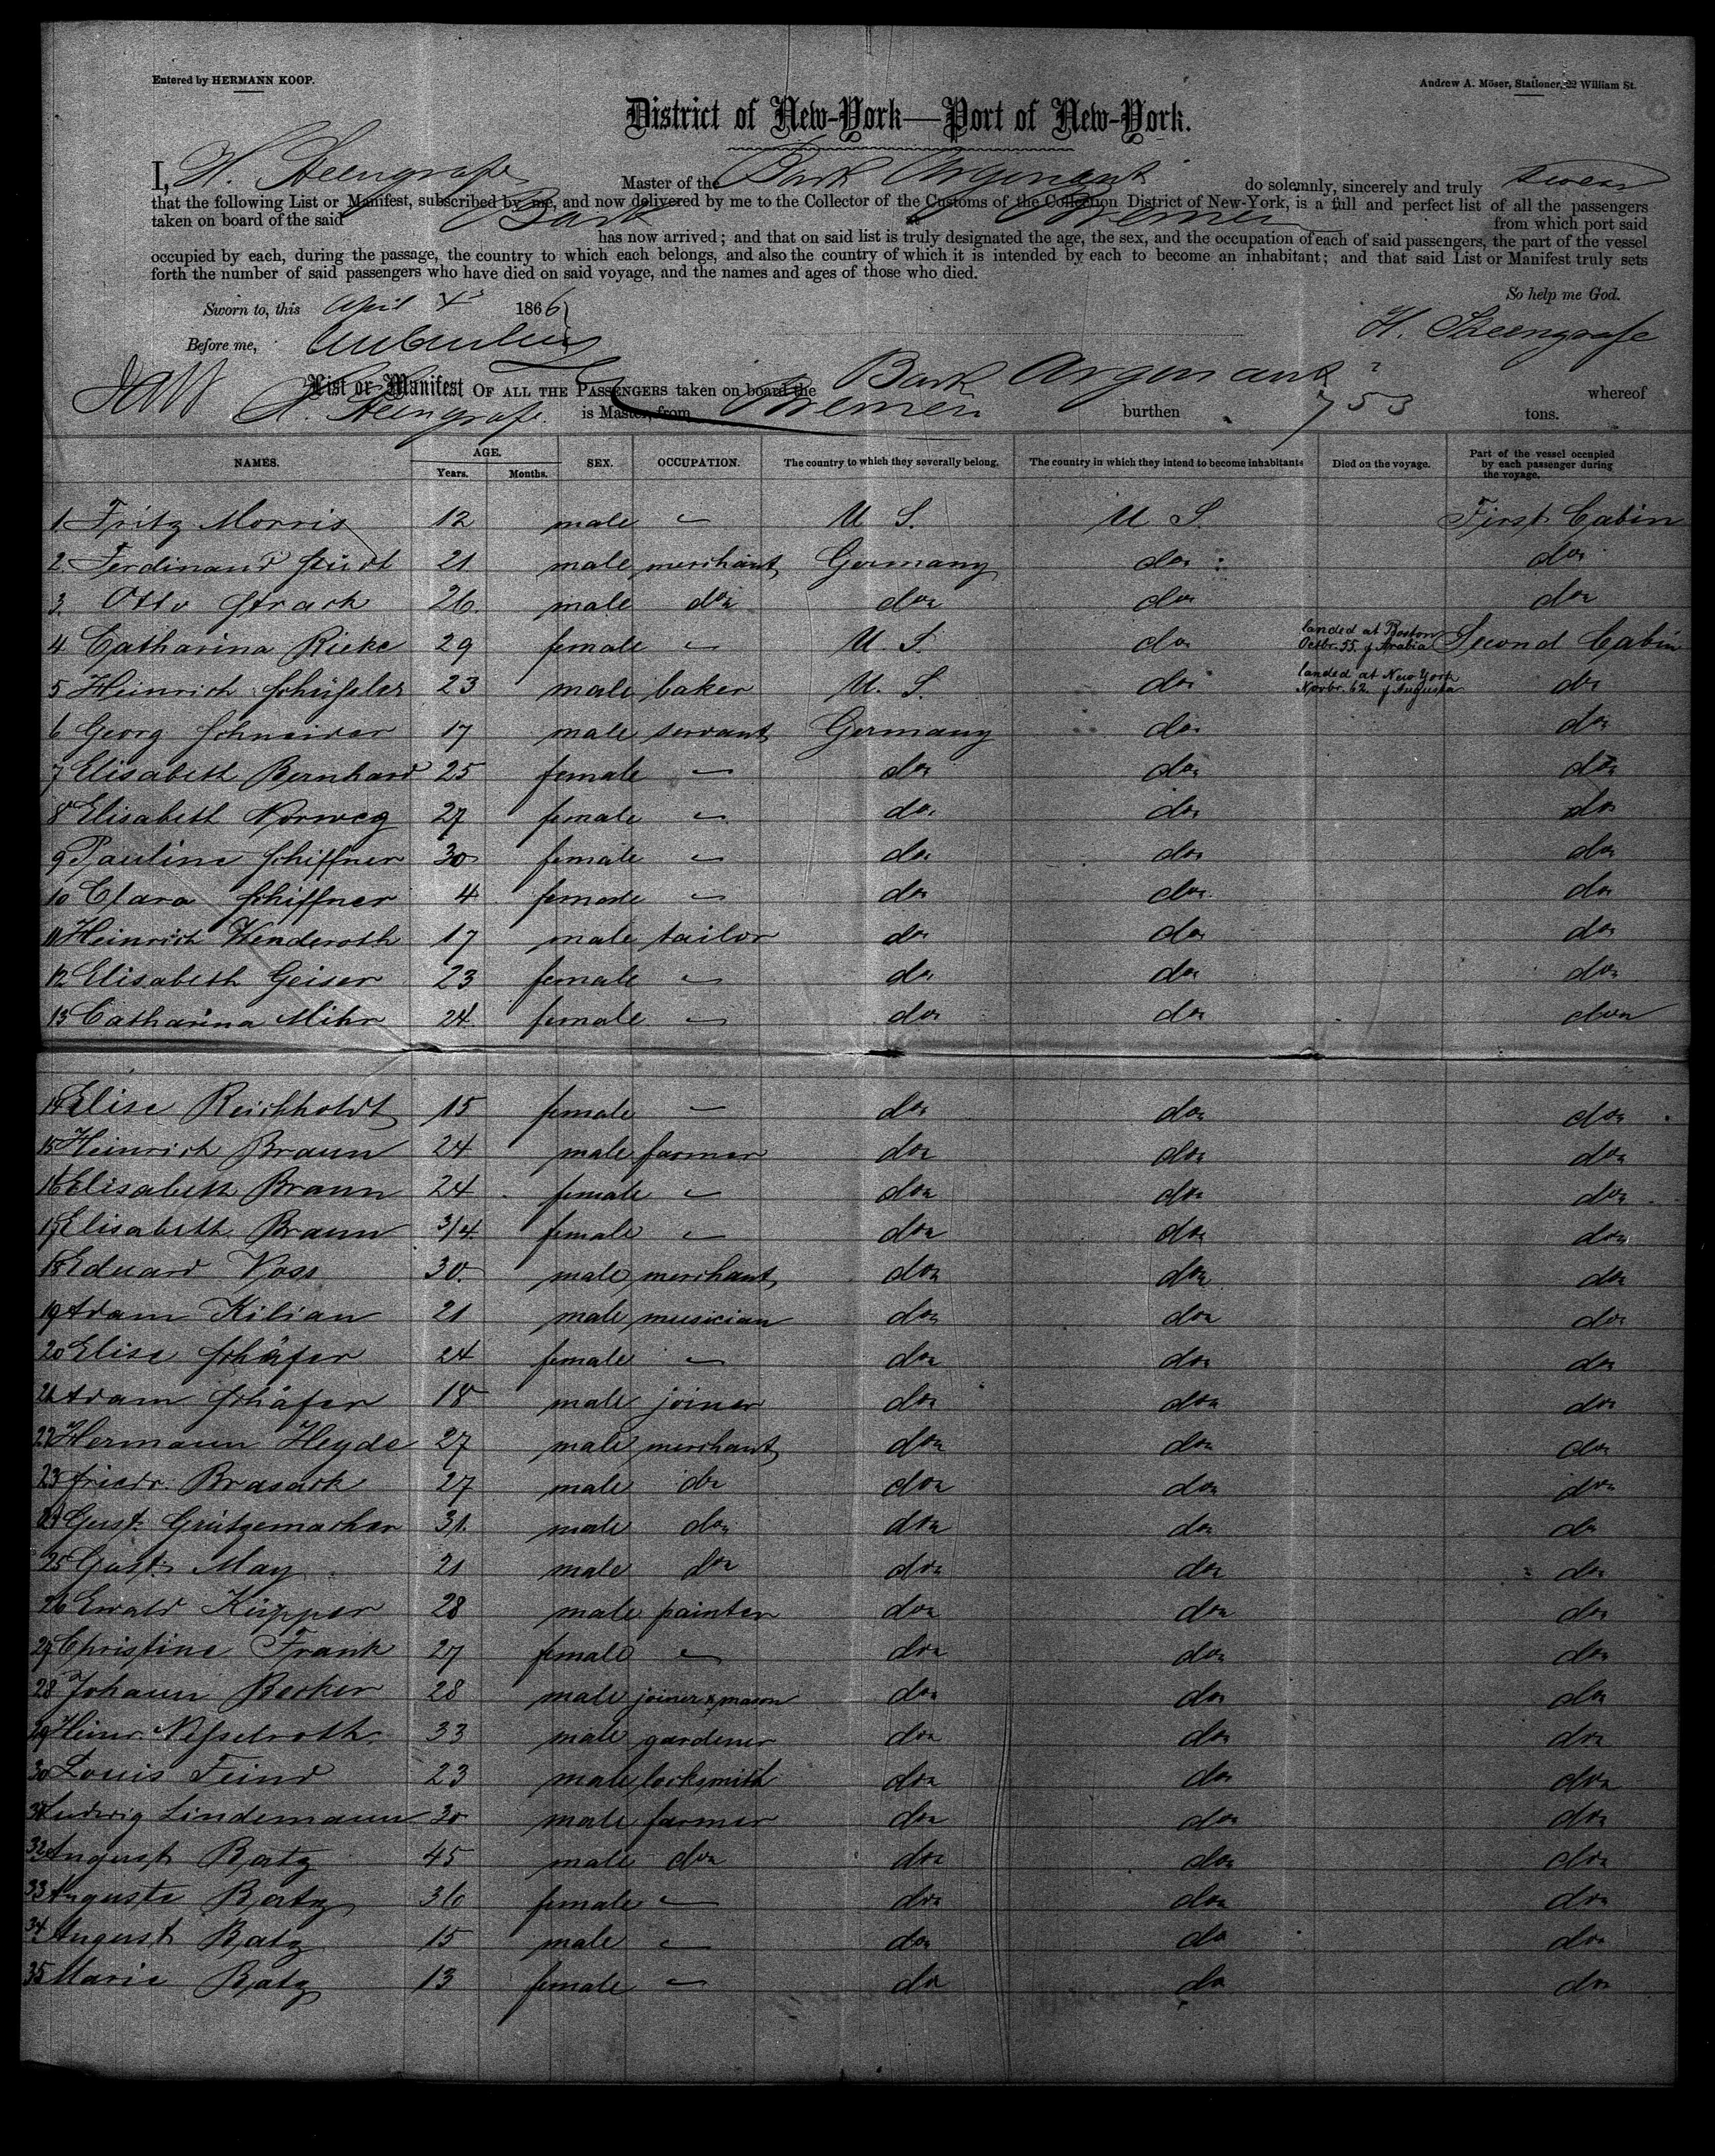 Entered by HERMANN KOOP.
Andrew A. Möser, Stationer, 22 William St.
District of New-York—Port of New-York.
I, H. Steengrafe Master of the Bark Argonaut do solemnly, sincerely and truly swear
that the following List or Manifest, subscribed by me, and now delivered by me to the Collector of the Customs of the Collection District of New-York, is a full and perfect list of all the passengers
taken on board of the said Bark at Bremen from which port said
has now arrived; and that on said list is truly designated the age, the sex, and the occupation of each of said passengers, the part of the vessel
occupied by each, during the passage, the country to which each belongs, and also the country of which it is intended by each to become an inhabitant; and that said List or Manifest truly sets
forth the number of said passengers who have died on said voyage, and the names and ages of those who died.
So help me God.
Sworn to, this April 4 1866
H. Steengrafe
Before me,
List or Manifest OF ALL THE PASSENGERS taken on board the Bark Argonaut whereof
H. Steengrafe is Master, from Bremen burthen 753 tons.
NAMES. AGE. Years. Months. SEX. OCCUPATION. The country to which they severally belong. The country in which they intend to become inhabitants Died on the voyage. Part of the vessel occupied by each passenger during the voyage.
1 Fritz Morris 12 male " U S. U S. First Cabin
2. Ferdinand Studt 21 male merchant Germany do do
3. Otto Strack 26 male do do do do
4 Catharina Rieke 29 female " U. S. do landed at Boston Octbr. 55. p Arabia Second Cabin
5 Heinrich Schüßler 23 male baker U. S. do landed at New York Novbr. 62. p Augusta do
6 Georg Schneider 17 male servant Germany do do
7 Elisabeth Bernhard 25 female " do do do
8 Elisabeth Norweg 27 female " do do do
9 Pauline Schiffner 30 female " do do do
10 Clara Schiffner 4 female " do do do
11 Heinrich Wenderoth 17 male tailor do do do
12 Elisabeth Geiser 23 female " do do do
13 Catharina Mihr 24 female " do do do
14 Elise Reichholdt 15 female " do do do
15 Heinrich Braun 24 male farmer do do do
16 Elisabeth Braun 24 female " do do do
17 Elisabeth Braun 3/4 female " do do do
18 Eduard Voss 30. male merchant do do do
19 Adam Kilian 21 male musician do do do
20 Elise Schäfer 24 female " do do do
21 Adam Schäfer 18 male joiner do do do
22 Hermann Heyde 27 male merchant do do do
23 Friedr. Brasack 27 male do do do do
24 Gust. Grützemacher 31. male do do do do
25 Gust. May 21 male do do do do
26 Ewald Küpper 28 male painter do do do
27 Christine Frank 27 female " do do do
28 Johann Becker 28 male joiner & mason do do do
29 Heinr. Neßelroth 33 male gardener do do do
30 Louis Feind 23 male locksmith do do do
31 Ludwig Lindemann 30 male farmer do do do
32 August Batz 45 male do do do do
33 Auguste Batz 36 female " do do do
34 August Batz 15 male " do do do
35 Marie Batz 13 female " do do do